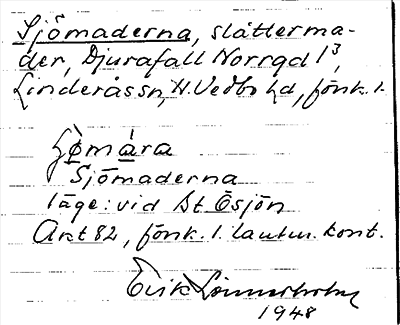 Sjömaderna, slåtterma-
der, Djurafall Norrgd 1³,
Linderås sn, N. Vedbo hd, fönk. 1.
Sjömaderna
läge: vid St Ösjön
Akt 82, fönk. 1. lantm. kont.
Erik
1948